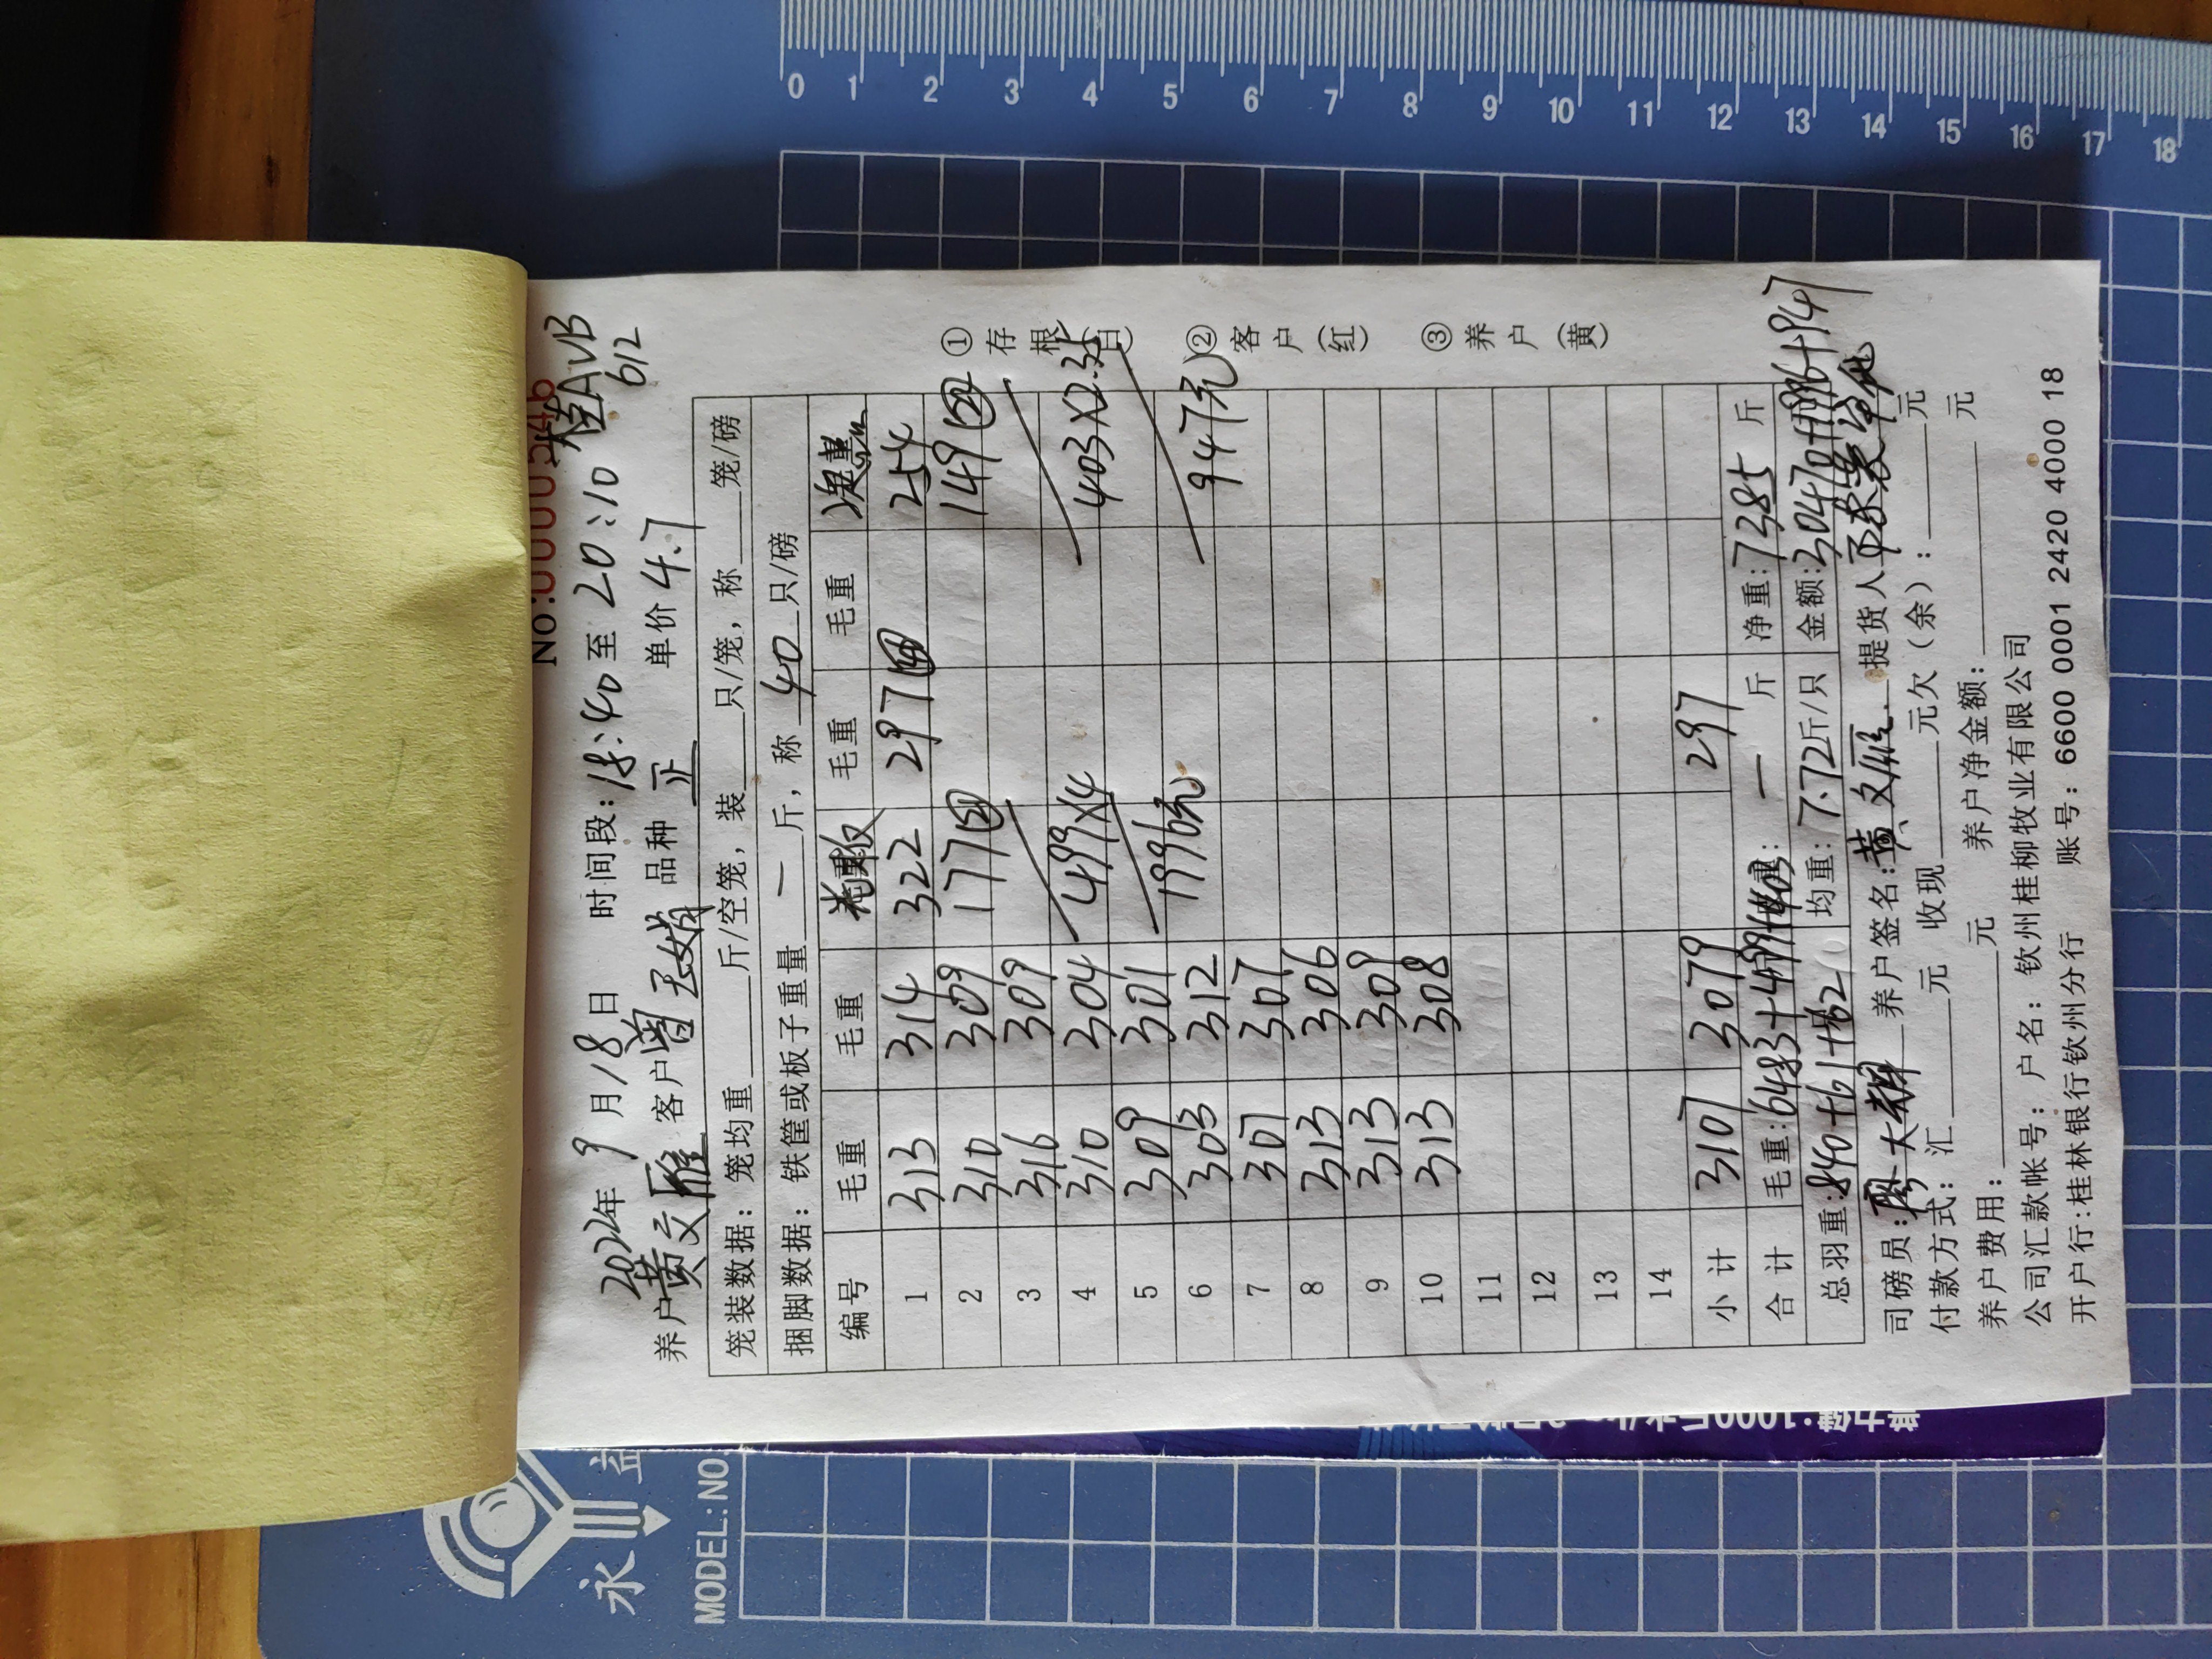 NO:0000546
桂AVB
612
2022年9月18日 时间段:18:40至20:10
养户黄文雁 客户曾玉娟 品种 正 单价4.7
笼装数据: 笼均重 斤/空笼, 装 只/笼, 称 笼/磅
捆脚数据: 铁筐或板子重量 一 斤, 称 40 只/磅
编号 毛重 毛重 毛重 毛重
1 313 314 322 297㊵ 254
2 310 309 177 149
3 316 309
4 310 304 499X4 403X2.35
5 309 301
6 303 312 1996元 947元
7 307 307
8 313 306
9 313 309
10 313 308
11
12
13
14
小计 3107 3079 297
合计 毛重:6483+499+403 一 斤 净重:7385 斤
总羽重:840+61+62 均重:7.72斤/只 金额:30470+1996+947
司磅员: 养户签名:黄文雁 提货人
付款方式: 汇 元 收现 元欠(余): 元
养户费用: 元 养户净金额: 元
公司汇款帐号: 户名: 钦州桂柳牧业有限公司
开户行:桂林银行钦州分行 账号: 6600 0001 2420 4000 18
①存根(白) ②客户(红) ③养户(黄)
0 1 2 3 4 5 6 7 8 9 10 11 12 13 14 15 16 17 18
永益
MODEL: NO